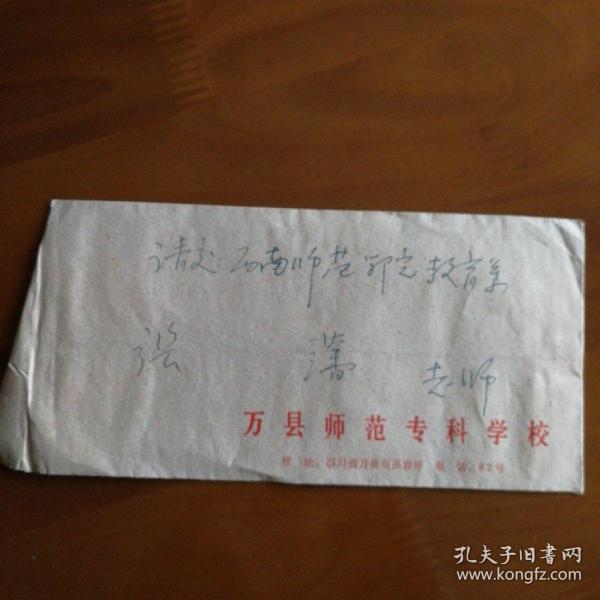 请交：西南师范学院教育系
张 老师
万县师范专科学校
校 址：四川省万县市 电 话：62号
孔夫子旧书网
www.kongfz.com